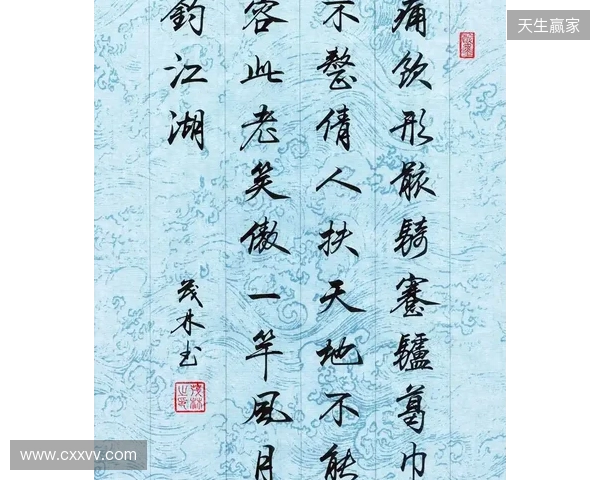 天生赢家
痛飲形骸騎蹇驢葛巾
不整倩人扶天地不能
容此老笑傲一竿風月
釣江湖
茂林书
www.cxxvv.com